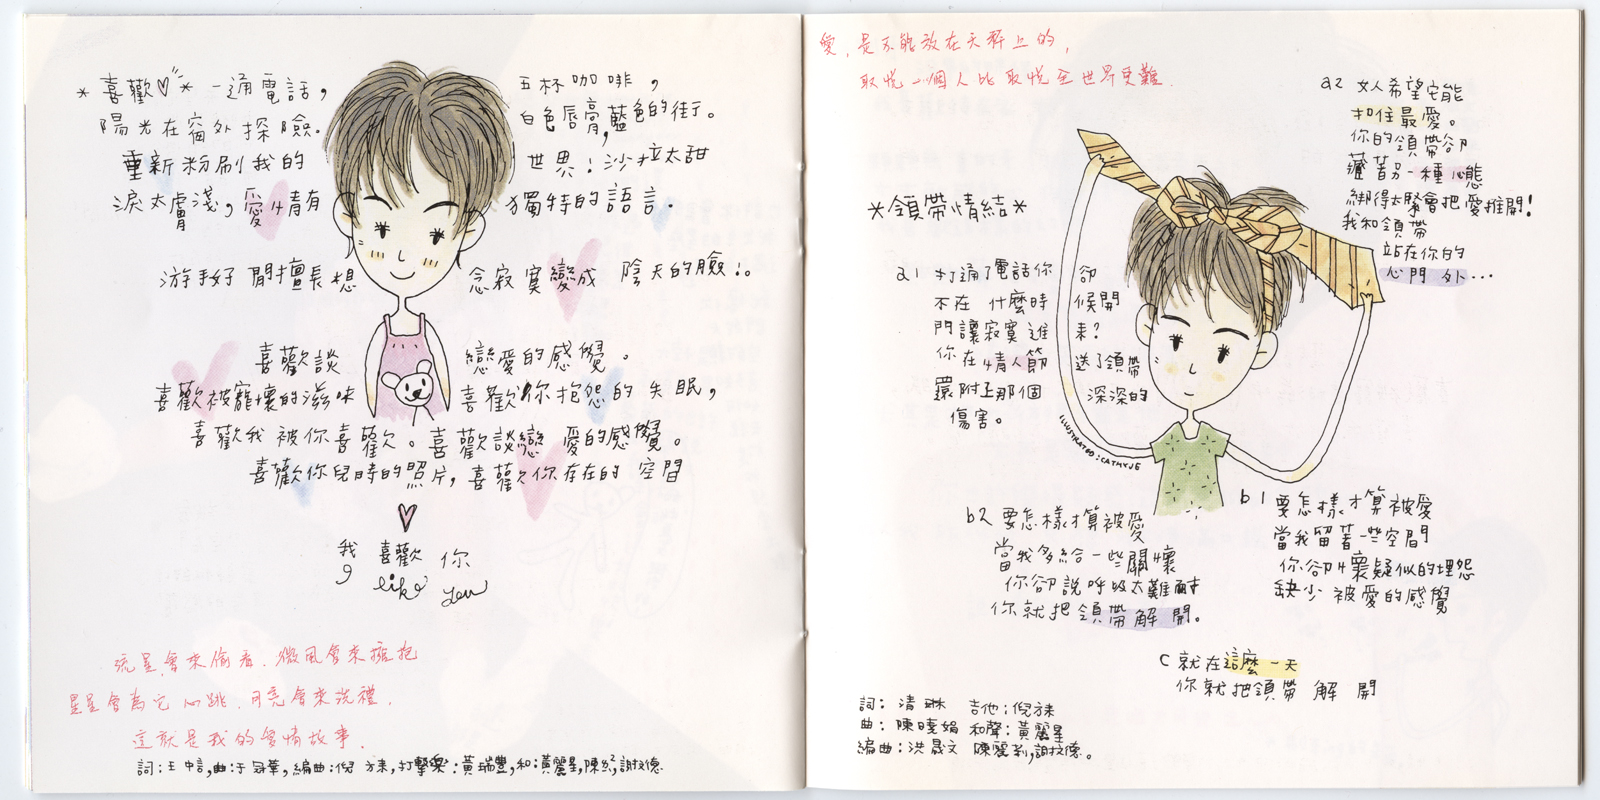 *喜歡♡* 一通電話, 五杯咖啡,
陽光在窗外探險. 白色唇膏,藍色的街。
重新粉刷我的世界:沙拉太甜
淚太膚淺,愛情有獨特的語言.
游手好閒擅長想念寂寞變成陰天的臉!。
喜歡談戀愛的感覺。
喜歡被寵壞的滋味 喜歡你抱怨的失眠,
喜歡我被你喜歡。喜歡談戀愛的感覺。
喜歡你兒時的照片,喜歡你存在的空間
我喜歡你
like you
流星會來偷看.微風會來擁抱
星星會為它心跳.月亮會來洗禮.
這就是我的愛情故事.
詞:王中言,曲:于冠華,編曲:倪方來,打擊樂:黃瑞豐,和:黃麗星,陳,謝文德.
愛,是不能放在天秤上的,
取悅一個人比取悅全世界更難.
*領帶情結*
a1 打通了電話你卻
不在 什麼時候開
門讓寂寞進來?
你在情人節送了領帶
還附上那個深深的
傷害。
a2 女人希望它能
扣住最愛。
你的領帶卻
藏著另一種心態
綁得太緊會把愛推開!
我和領帶
站在你的
心門外...
ILLUSTRATED:CATHYJE
b1 要怎樣才算被愛
當我留著一些空間
你卻懷疑似的埋怨
缺少被愛的感覺
b2 要怎樣才算被愛
當我多給一些關懷
你卻說呼吸太難耐
你就把領帶解開。
C 就在這麼一天
你就把領帶解開
詞: 清琳 吉他:倪方來
曲: 陳曉娟 和聲:黃麗星
編曲:洪晟文 陳麗莉,謝文德。